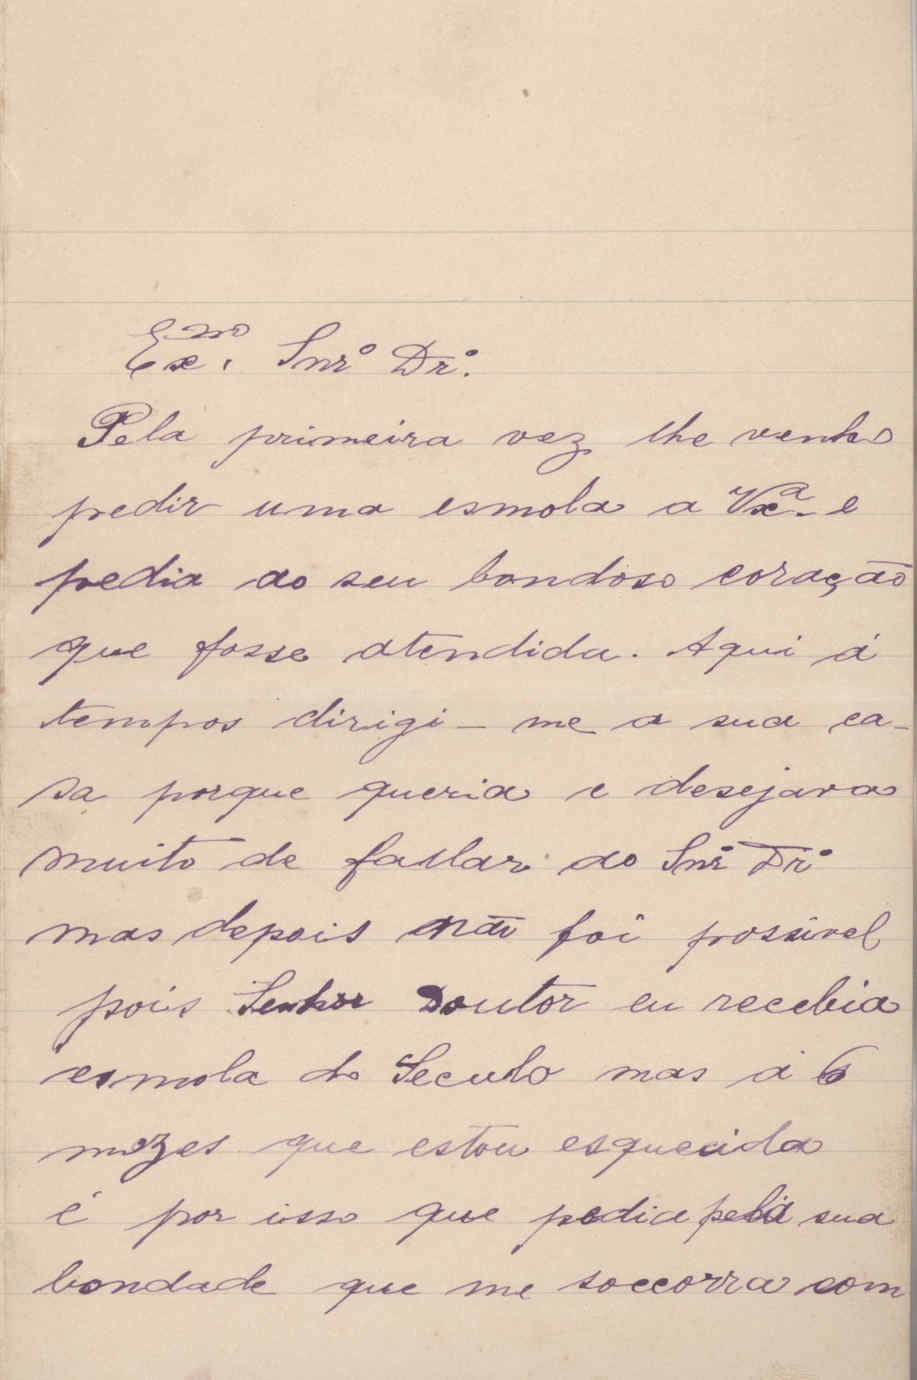 Ex.mo Snr.º Dr.
Pela primeira vez lhe venho
pedir uma esmola a Vx.ª e
pedia ao seu bondoso coração
que fosse atendida. Aqui á
tempos dirigi-me a sua ca-
sa porque queria e desejava
muito de fallar ao Snr Dr
mas depois não foi possivel
pois Senhor Doutor eu recebia
esmola do Seculo mas á 6
mezes que estou esquecida
é por isso que pedia pela sua
bondade que me soccorra com